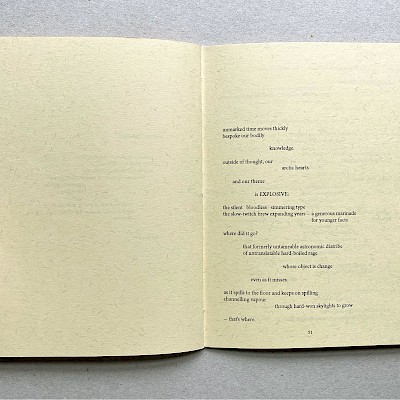 unmarked time moves thickly
bespoke our bodily
knowledge.
outside of thought, our
arctic hearts
and our theme
is EXPLOSIVE:
the silent bloodless simmering type
the slow-twitch brew expanding years – a generous marinade
for younger faces
where did it go?
that formerly untameable astronomic diatribe
of untranslatable hard-boiled rage
whose object is change
even as it misses
as it spills to the floor and keeps on spilling
channelling vapour
through hard-won skylights to grow
– that's where.